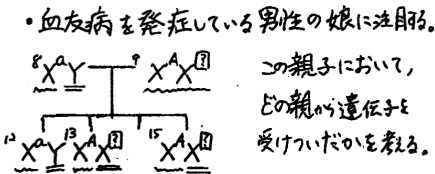 ・血友病を発症している男性の娘に注目する。
8 XᵃY 9 XᴬX?
この親子において,
どの親から遺伝子を
受けついだかを考える。
12 XᵃY 13 XᴬX? 15 XᴬX?